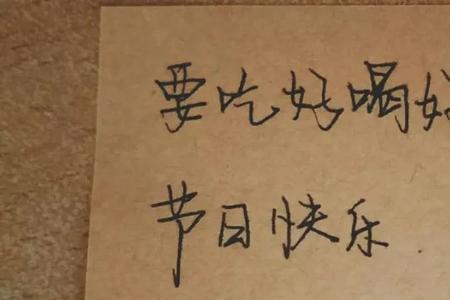 要吃好喝好
节日快乐